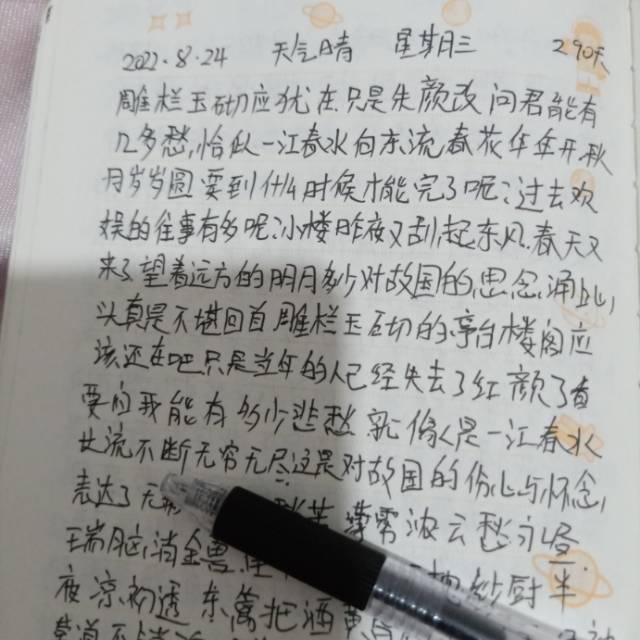 2022.8.24 天气晴 星期三 290天
雕栏玉砌应犹在只是朱颜改问君能有
几多愁,恰似一江春水向东流,春花年年开秋
月岁岁圆要到什么时候才能完了呢?过去欢
娱的往事有多呢?小楼昨夜又刮起东风.春天又
来了望着远方的明月多少对故国的思念,涌上心
头真是不堪回首雕栏玉砌的亭台楼阁应
该还在吧只是当年的人已经失去了红颜了有
要问我能有多少悲愁就像是一江春水
北流不断无穷无尽这是对故国的伤心与怀念,
表达了无 雾浓云愁永昼
瑞脑消金兽 纱厨半
夜凉初透东篱把酒黄
莫道不